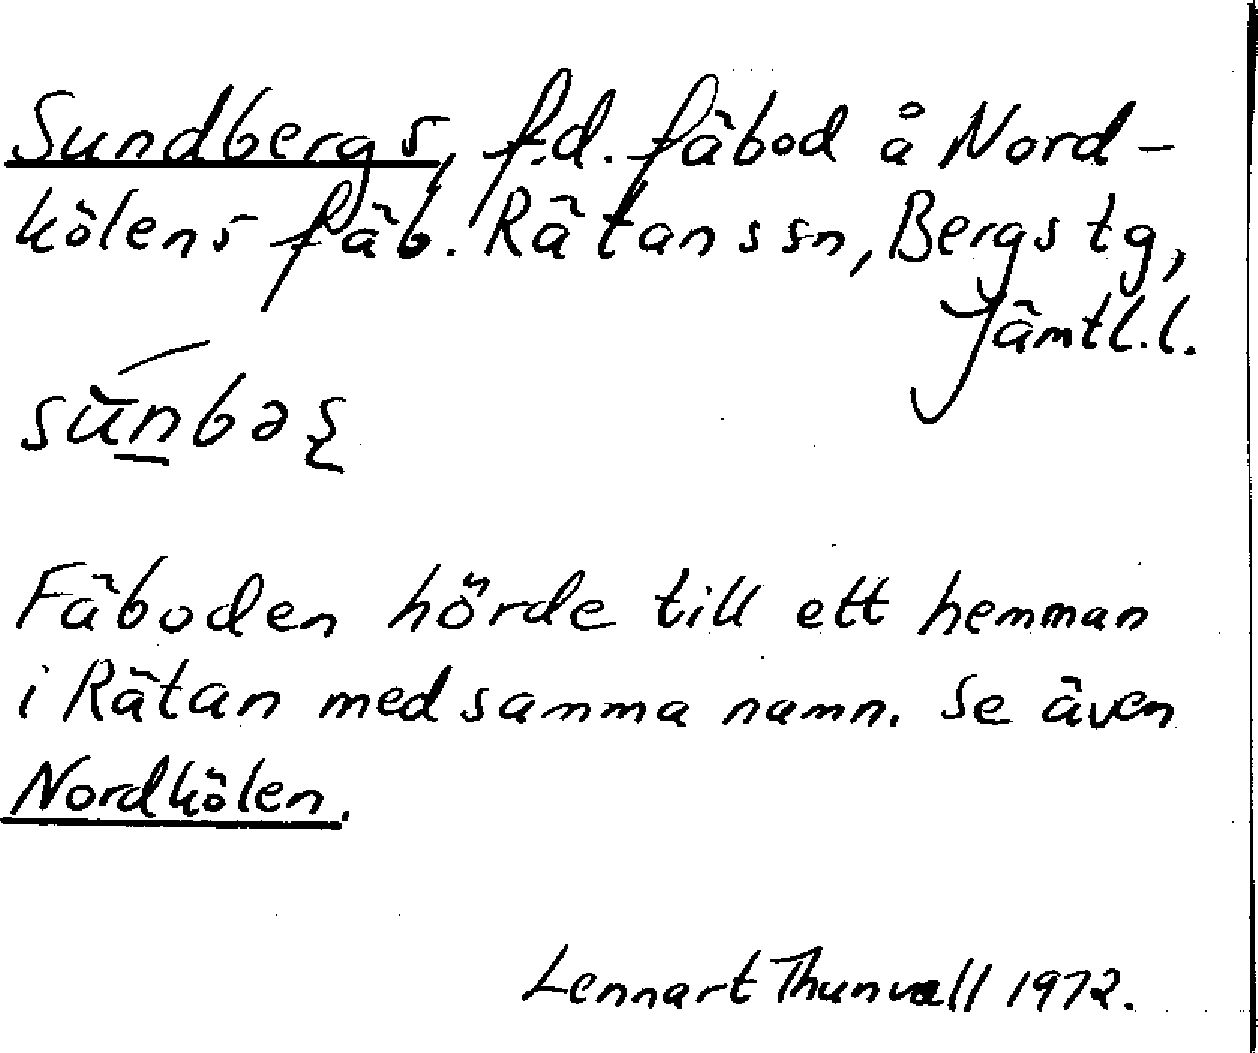 Sundbergs, f.d. fäbod å Nord-
kölens fäb. Rätans sn, Bergs tg,
Jämtl.l.
Fäboden hörde till ett hemman
i Rätan med samma namn. Se även
Nordkölen.
Lennart Thunvall 1972.